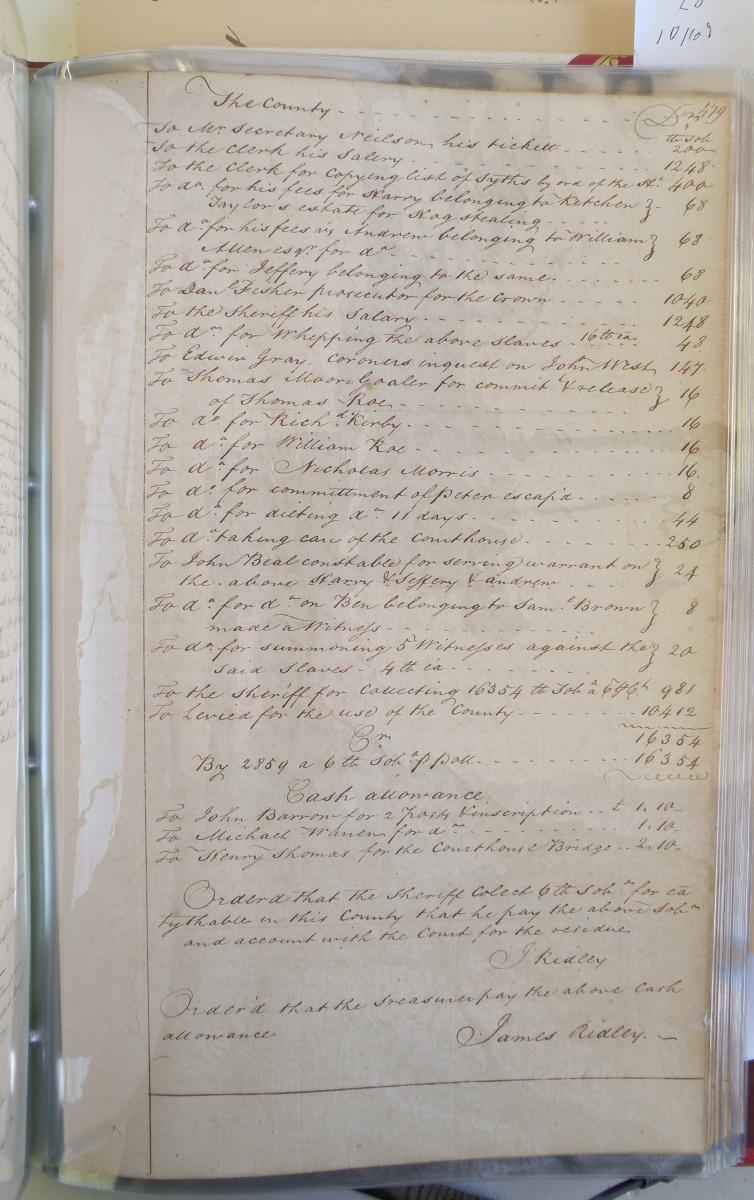 10/6
479
The County - - - - Dr
lb Tob
To Mr. Secretary Neilson his tickett - - - 200
To the Clerk his Salery - - - 1248
To the Clerk for Copying list of Tyths by ord of the 400
To do. for his fees for Harry belonging to Ketchen } 68
Taylor's estate for Hog stealing - - -
To do for his fees vs Andrew belonging to William } 68
Allen esqr. for do - - -
To do for Jeffery belonging to the same - - - 68
To Danl. Fisher prosecutor for the Crown - - - 1040
To the Sheriff his Salary - - - 1248
To do for Whipping the above slaves 16 lb ea 48
To Edwin Gray. Coroners inquest on John West 147
To Thomas Moore Goaler for commit & release } 16
of Thomas Roe - - -
To do for Richd. Kirby - - - 16
To do for William Roe - - - 16
To do for Nicholas Morris - - - 16
To do for committment of Peter escap'd - - - 8
To do for dieting do 11 days - - - 44
To do taking care of the Courthouse - - - 250
To John Beal constable for serving warrant on } 24
the above Harry & Jeffery & andrew - - -
To do for do on Ben belonging to Saml. Brown } 8
made a Witness - - -
To do for summoning 5 Witnesses against the } 20
said slaves - 4 lb ea - - -
To the sheriff for Collecting 16354 lb Tob a 6 981
To Levied for the use of the County - - - 10412
16354
Cr
By 2859 a 6 lb Tobo p poll - - - 16354
Cash allowance
To John Barrow for 2 posts & inscription - - £ 1.10
To Michael Warren for do - - - 1.10
To Henry Thomas for the Courthouse Bridge - - 2.10
Orderd that the Sheriff Colect 6 lb Tobo for ea
tythable in this County that he pay the above Tobo
and account with the Court for the residue
J Ridley
Order'd that the Treasurer pay the above Cash
allowance
James Ridley. -